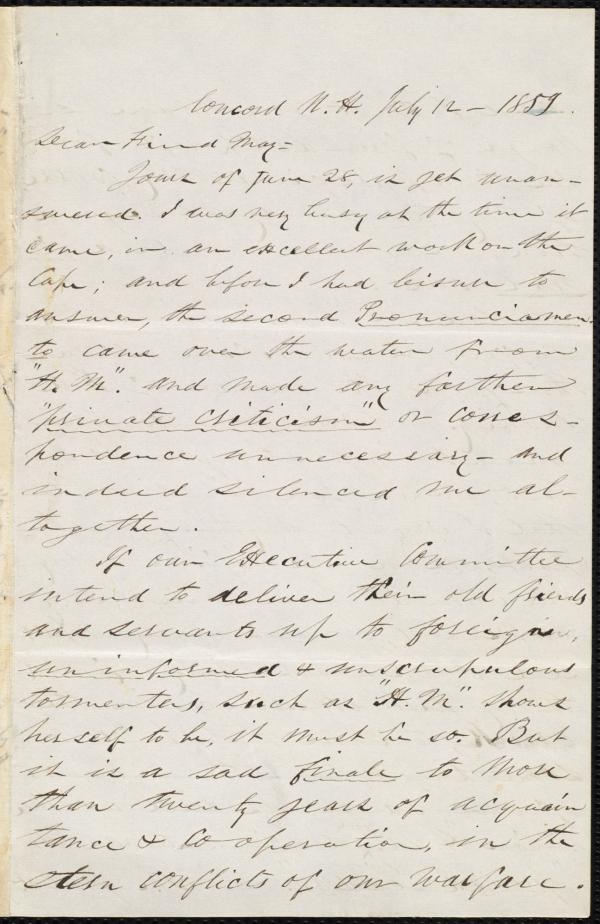 Concord N. H. July 12 - 1859.
Dear Friend May -
Yours of June 28, is yet unan-
swered. I was very busy at the time it
came, in an excellent work on the
Cape; and before I had leisure to
answer, the second Pronunciamen-
to came over the water from
"H. M". and made any farther
"private criticism" or corres-
pondence unnecessary - and
indeed silenced me al-
together.
If our Executive Committee
intend to deliver their old friends
and servants up to foreign,
uninformed & unscrupulous
tormentors, such as "H. M". shows
herself to be, it must be so. But
it is a sad finale to more
than twenty years of acquain
tance & co operation, in the
stern conflicts of our warfare.